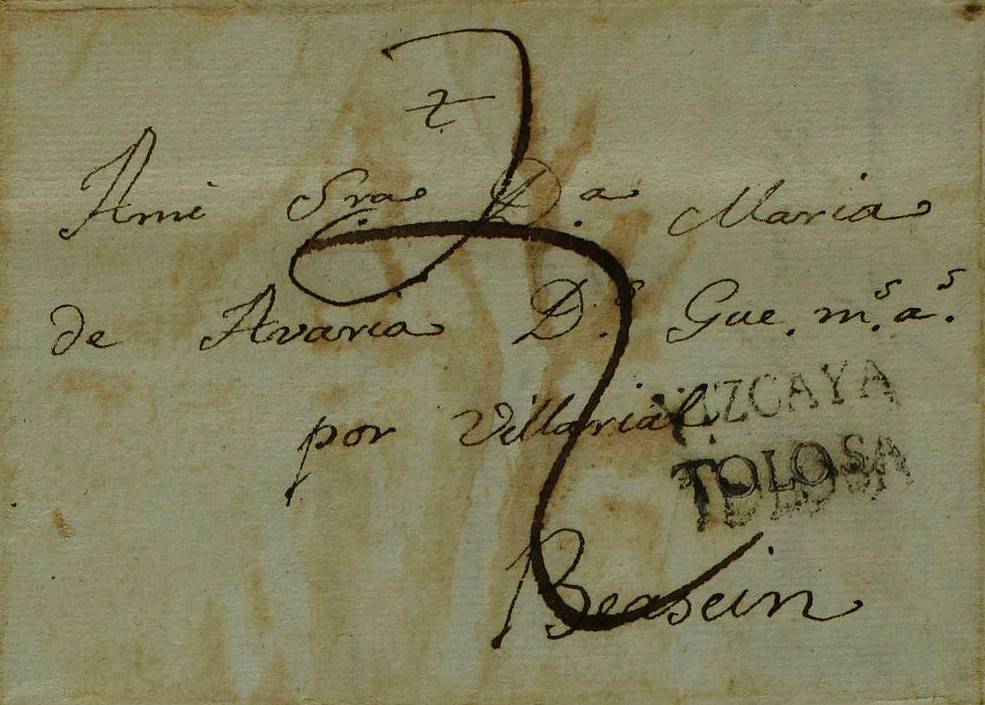 Ami Sra. Da. Maria
de Avaria Ds. Gue. ms. as.
por Villarial
VIZCAYA
TOLOSA
Beasein